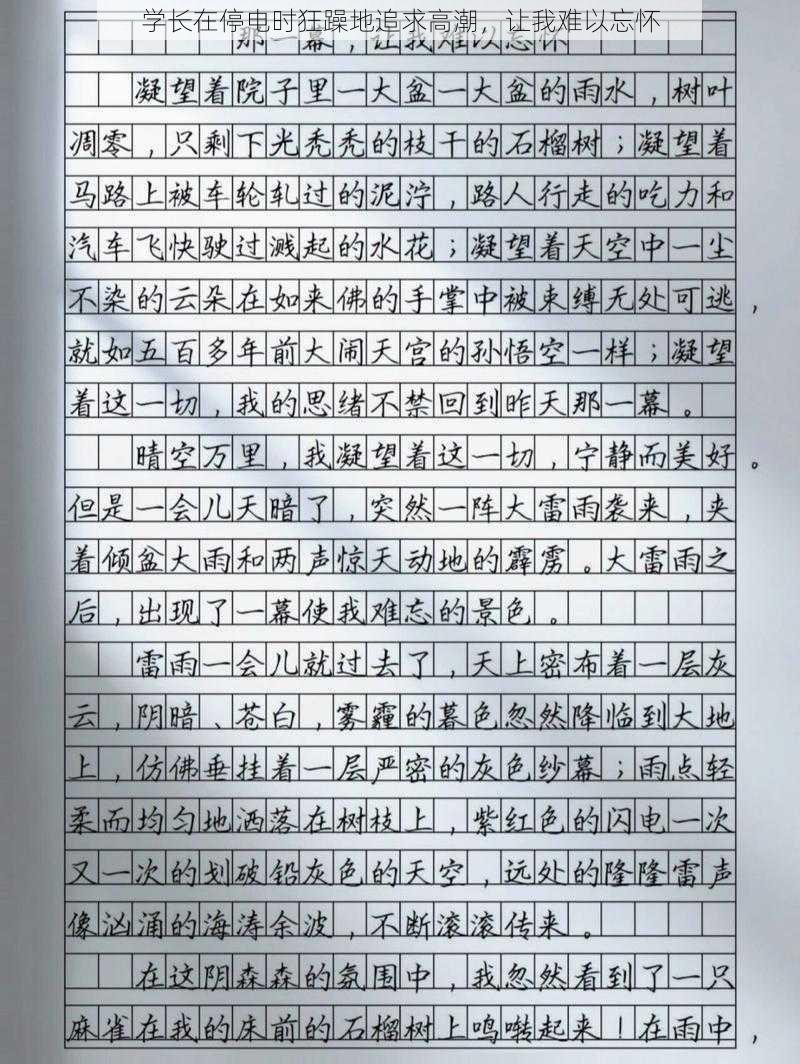 学长在停电时狂躁地追求高潮，让我难以忘怀
那一幕，让我难以忘怀
凝望着院子里一大盆一大盆的雨水，树叶
凋零，只剩下光秃秃的枝干的石榴树；凝望着
马路上被车轮轧过的泥泞，路人行走的吃力和
汽车飞快驶过溅起的水花；凝望着天空中一尘
不染的云朵在如来佛的手掌中被束缚无处可逃，
就如五百多年前大闹天宫的孙悟空一样；凝望
着这一切，我的思绪不禁回到昨天那一幕。
晴空万里，我凝望着这一切，宁静而美好。
但是一会儿天暗了，突然一阵大雷雨袭来，夹
着倾盆大雨和两声惊天动地的霹雳。大雷雨之
后，出现了一幕使我难忘的景色。
雷雨一会儿就过去了，天上密布着一层灰
云，阴暗、苍白，雾霾的暮色忽然降临到大地
上，仿佛垂挂着一层严密的灰色纱幕；雨点轻
柔而均匀地洒落在树枝上，紫红色的闪电一次
又一次的划破铅灰色的天空，远处的隆隆雷声
像汹涌的海涛余波，不断滚滚传来。
在这阴森森的氛围中，我忽然看到了一只
麻雀在我的床前的石榴树上鸣啭起来！在雨中，